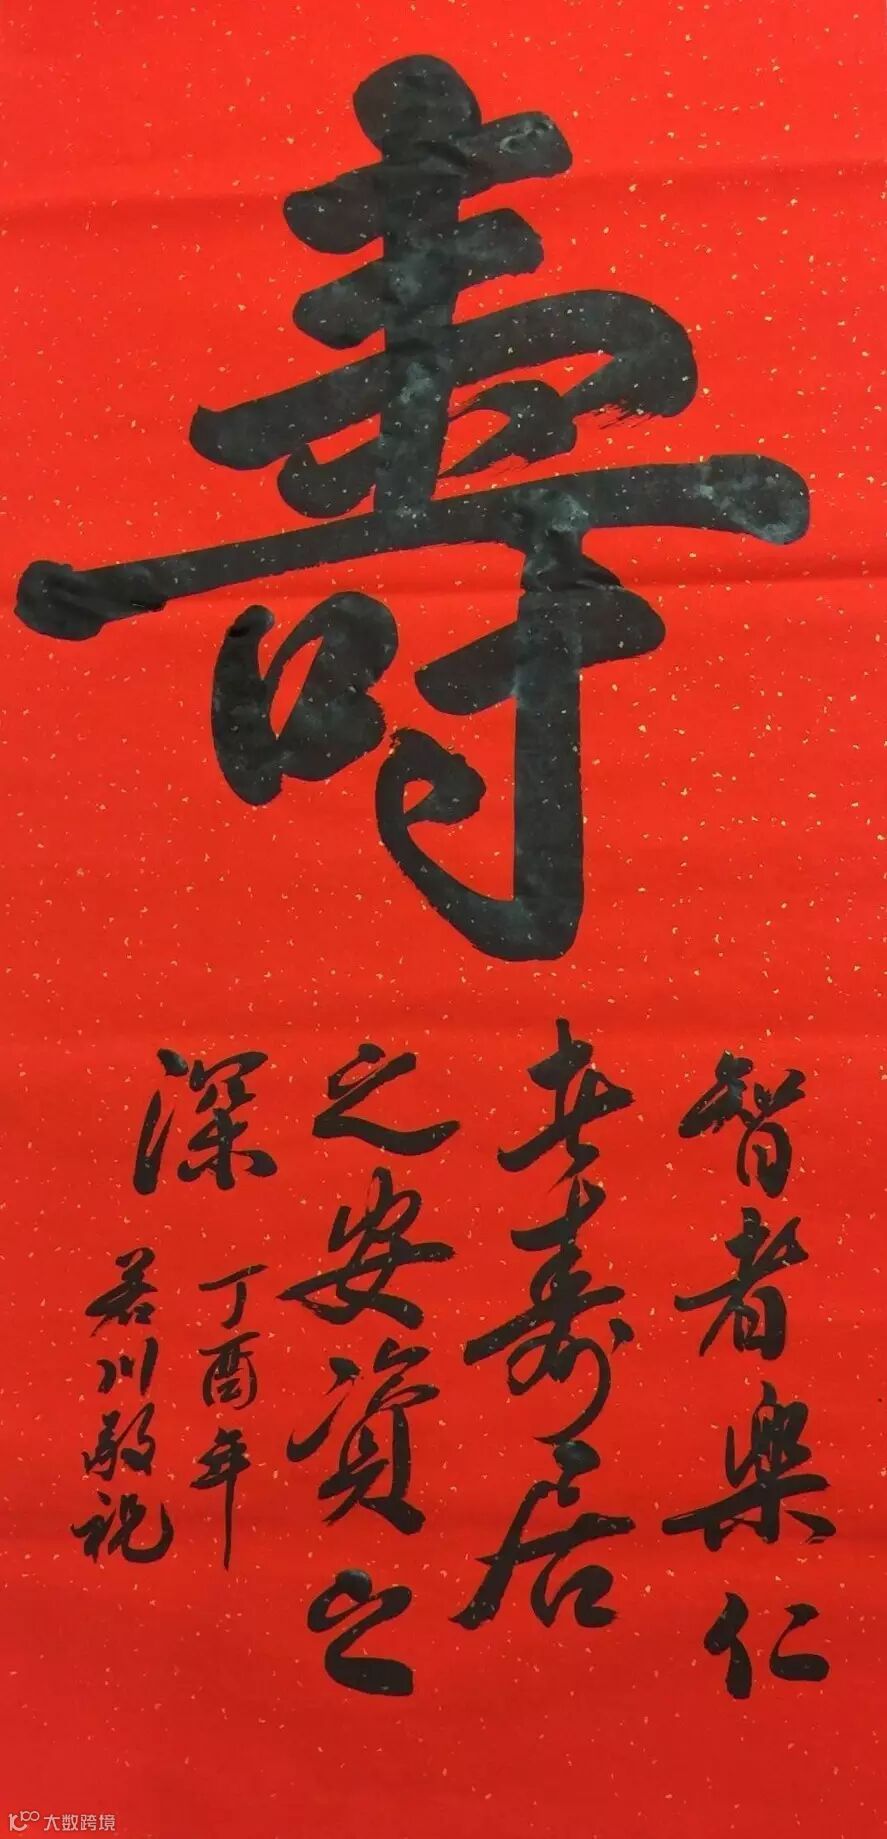 壽
智者樂仁
者壽居
之安資之
深
丁酉年
若川敬祝
大数跨境